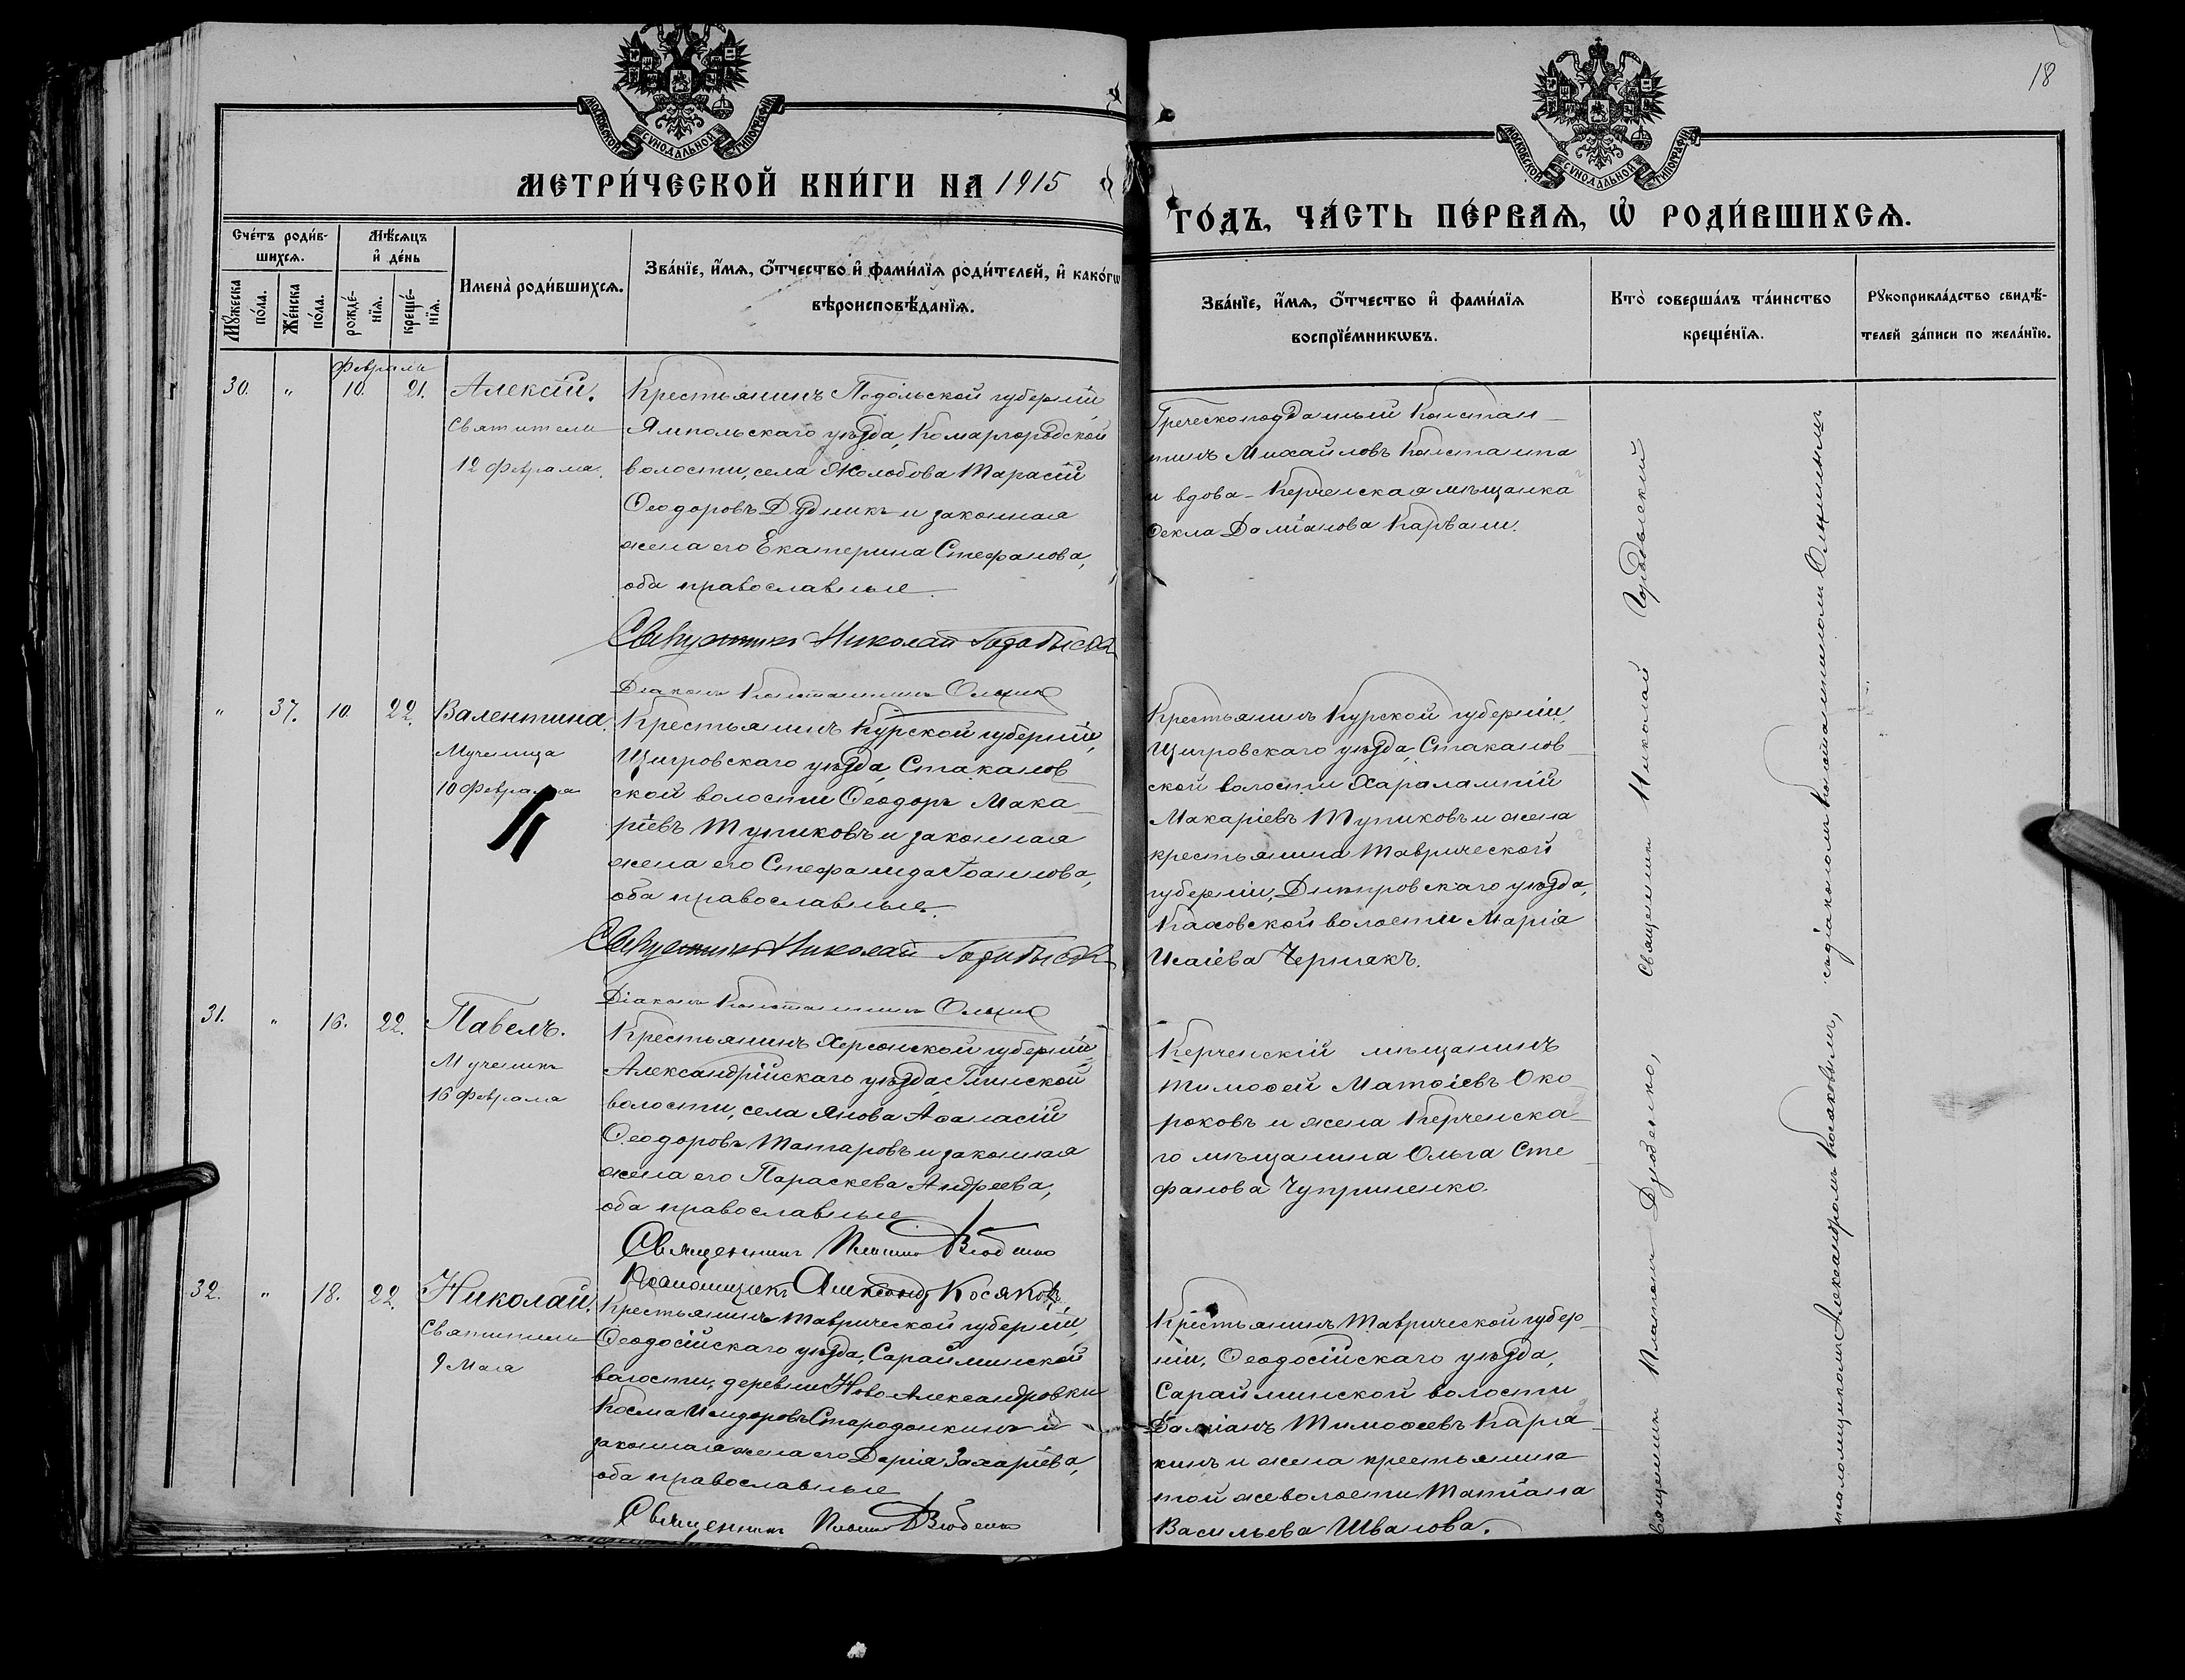 18
МОСКОВСКОЙ СѴНОДАЛЬНОЙ ТИПОГРАФІИ
МЕТРИ́ЧЕСКОЙ КНИ́ГИ НА 1915
МОСКОВСКОЙ СѴНОДАЛЬНОЙ ТИПОГРАФІИ
ГО́ДЪ, ЧА́СТЬ ПЕ́РВАѦ, Ѽ РОДИ́ВШИХСѦ.
Сче́тъ роди́в-
шихсѧ.
Мѣ́сѧцъ
и҆ де́нь
Мꙋ́жеска
по́ла.
Же́нска
по́ла.
рожде́-
нїѧ.
креще́-
нїѧ.
Имена̀ роди́вшихсѧ.
Зва́нїе, и҆́мѧ, ѻ҆́тчество и҆ фами́лїѧ роди́телей, и҆ како́гѡ
вѣроисповѣ́данїѧ.
Зва́нїе, и҆́мѧ, ѻ҆́тчество и҆ фами́лїѧ
воспрїе́мникѡвъ.
Кто̀ соверша́лъ та́инство
креще́нїѧ.
Рꙋкоприкла́дство свидѣ́-
телей за́писи по жела́нїю.
Февраль
30. " 10. 21. Алексій.
Святителя
12 Февраля.
Крестьянинъ Подольской губерніи,
Ямпольскаго уѣзда, Комаргородской
волости, села Жолобова Тарасій
Ѳеодоровъ Дудникъ и законная
жена его Екатерина Стефанова,
оба православные.
Священникъ Николай
Діаконъ Константинъ
Греческоподданный Констан-
тинъ Михайловъ Константа
и вдова - Керченская мѣщанка
Ѳекла Даміанова Карвали.
" 37. 10. 22. Валентина.
Мученица
10 Февраля
Крестьянинъ Курской губерніи,
Щигровскаго уѣзда, Стаканов
ской волости Ѳеодоръ Мака-
ріевъ Тупиковъ и законная
жена его Стефанида Іоаннова,
оба православные.
Священникъ Николай
Діаконъ Константинъ
Крестьянинъ Курской губерніи,
Щигровскаго уѣзда, Стаканов-
ской волости Харалампій
Макаріевъ Тупиковъ и жена
крестьянина Таврической
губерніи, Днѣпровскаго уѣзда,
Каховской волости Марія
Исаіева Чермакъ.
31. " 16. 22. Павелъ.
Мученикъ
16 Февраля
Крестьянинъ Херсонской губерніи,
Александрійскаго уѣзда, Глинской
волости, села Янова Аѳанасій
Ѳеодоровъ Татаровъ и законная
жена его Параскева Андреева,
оба православные
Священникъ Платонъ Дзюбенко
Псаломщикъ Александръ Косяковъ
Керченскій мѣщанинъ
Тимоѳей Матѳіевъ Око-
роковъ и жена Керченска-
го мѣщанина Ольга Сте-
фанова Чуприненко.
32. " 18. 22. Николай.
Святителя
9 Мая
Крестьянинъ Таврической губерніи,
Ѳеодосійскаго уѣзда, Сарайминской
волости, деревни Ново Александровки
Косма Исидоровъ Стародонкинъ и
законная жена его Дарія Захаріева,
оба православные
Священникъ Платонъ Дзюбенко
Крестьянинъ Таврической губер-
ніи, Ѳеодосійскаго уѣзда,
Сарайминской волости
Даміанъ Тимоѳеевъ Каря-
кинъ и жена крестьянина
той же волости Татіана
Васильева Швалова.
Священникъ Платонъ Дзюбенко, Священникъ Николай
псаломщикомъ Александромъ Косяковымъ, съ діакономъ Константиномъ